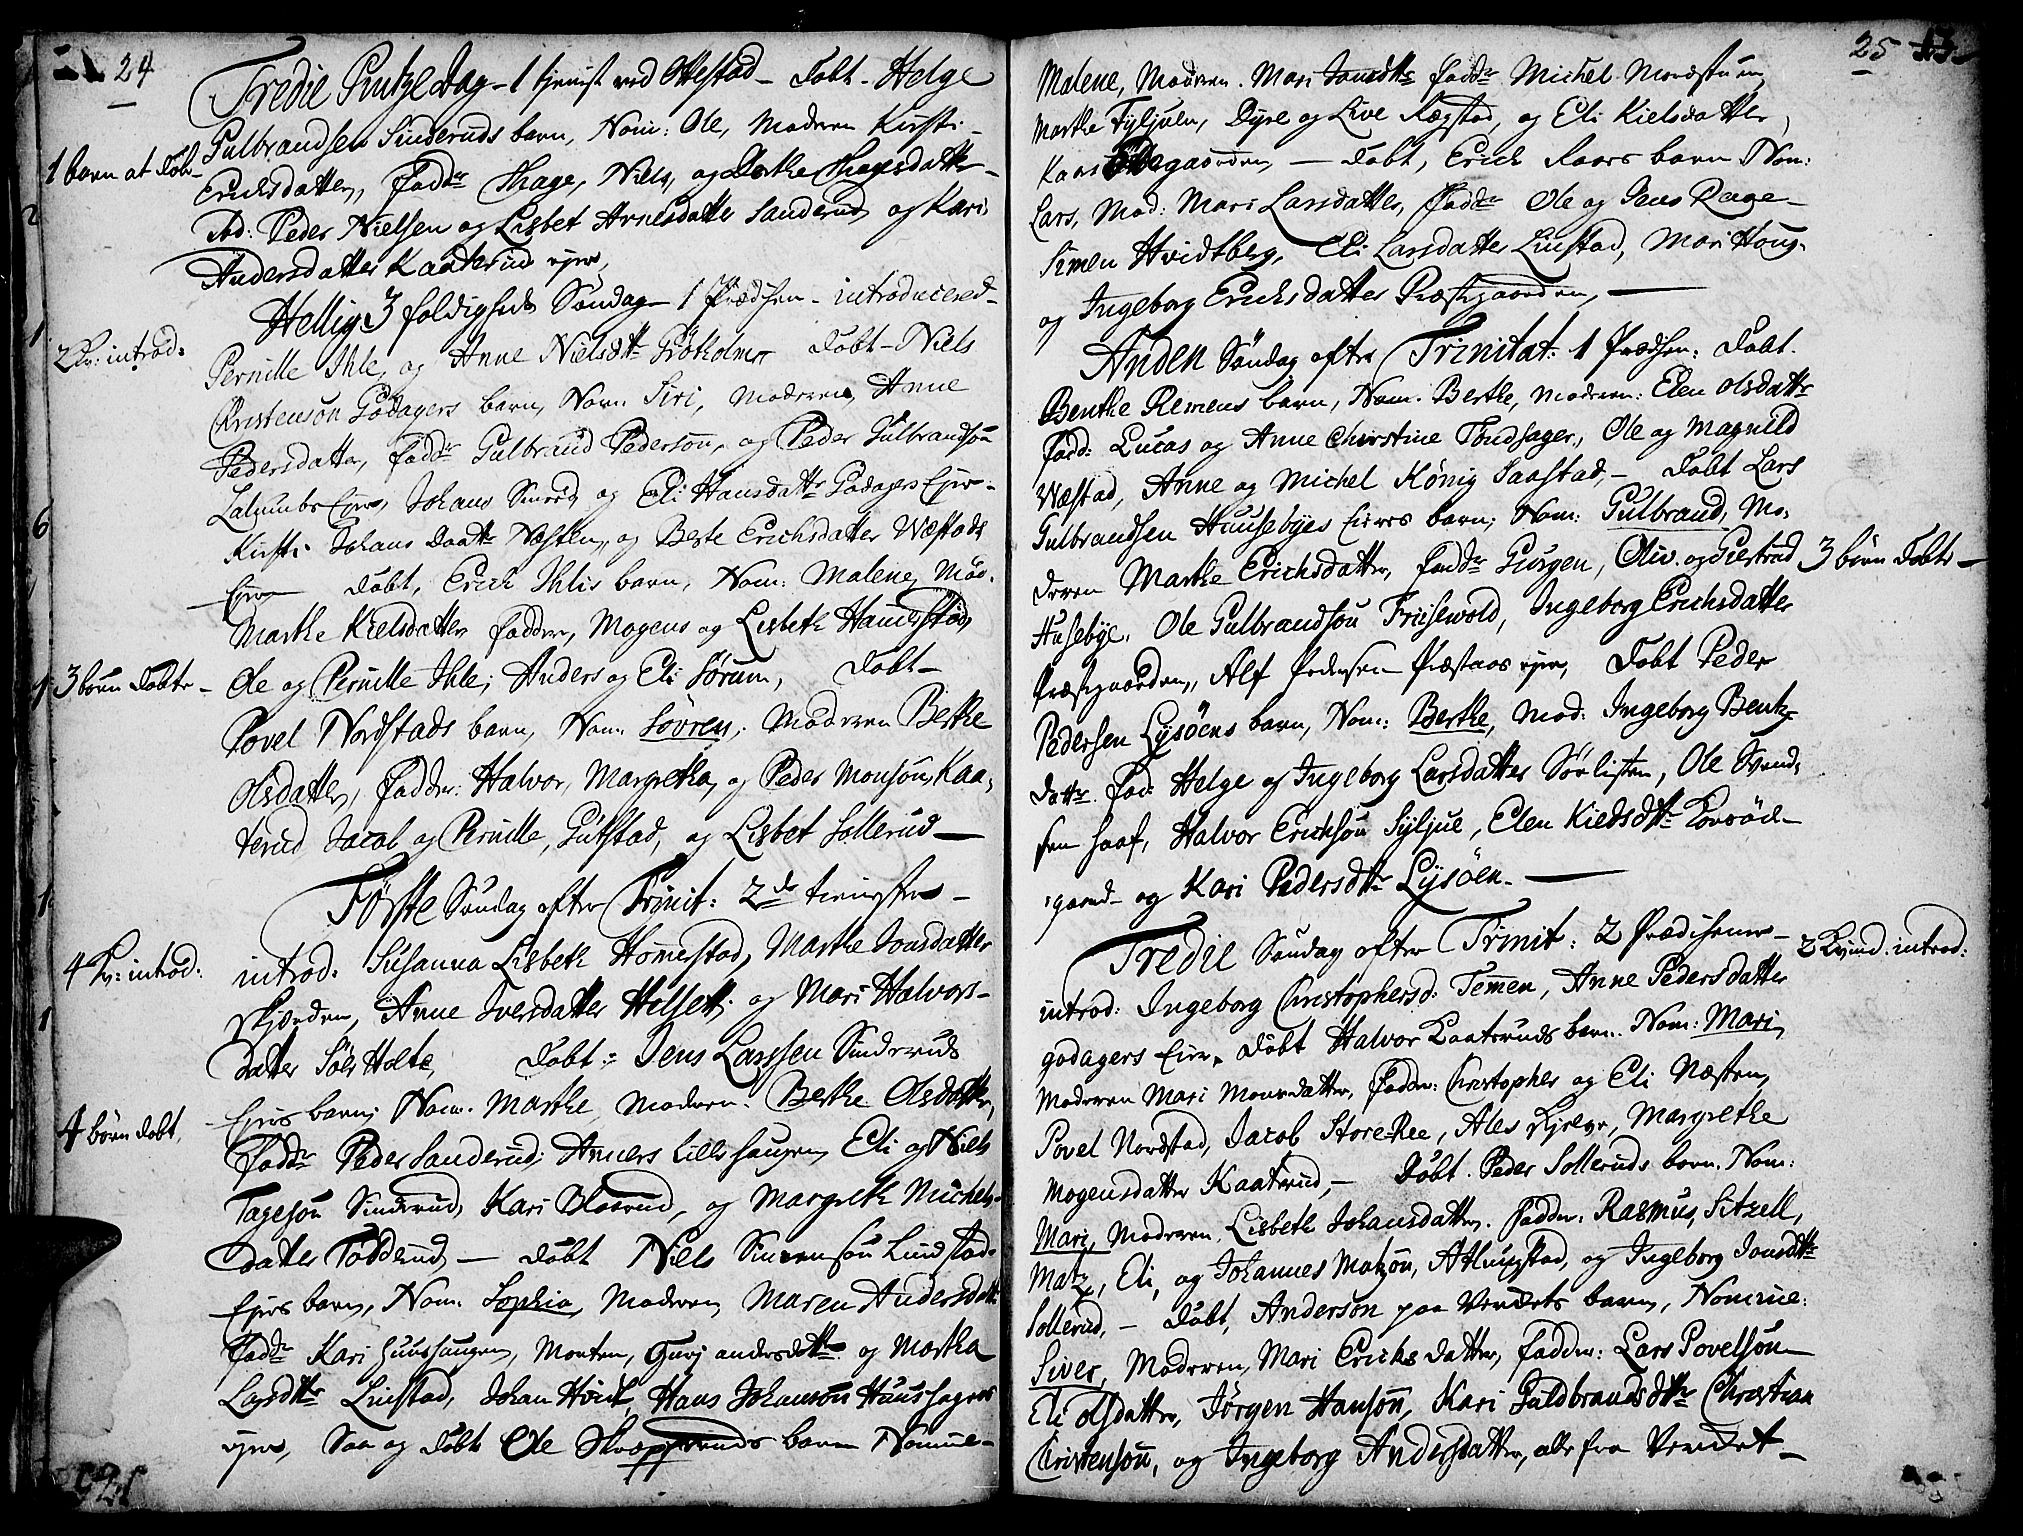 24
Tredie Pintzedag - 1 tjenist ved Ottestad - Døbt - Helge
Gulbrandsen Sinderuds barn, Nom: Ole, Moderen Kirsti
1 barn at døb-
Erichsdatter, Fadd: Thage, Niels, og Dorthe Thagesdatter
Peder Nielsen og Lisbet Arnesdatter Sanderud og Kari
Andersdatter Kaaterud ejer,
Hellig 3 foldigheds Søndag - 1 Prædken - introduceret -
2 Kv: introd:
Pernille Ihle, og Anne Nielsdttr Døbt - Niels
Christenson Godagers barn, Nom Siri, Moderen, Anne
Pedersdatter, Fadd: Gulbrand Pederson, og Peder Gulbrandson
Ejer, Johans og Eli Hansdatter Godagers Ejer -
Kirsti Johans Daatter Næsten, og Berte Erichsdatter Wæstads
Ejer - døbt, Erich Ihlis barn, Nom: Malene, Mod.
Marthe Kielsdatter fadderne, Mogens og Lisbeth
3 børn døbte -
Ole og Pernille Ihle, Anders og Eli Sørum, Døbt -
Povel Nordstads barn, Nom: Sövren, Moderen Berthe
Olsdatter, Fadder: Halvor, Margretha, og Peder Monsön, Kaa-
terud Jacob og Pernille, Gutstad, og Lisbet Sollerud -
Förste Søndag efter Trinit: 2de tienister -
4 Kv: introd:
introd: Susanna Lisbeth Hommestad, Marthe Jonsdatter
Anne Iversdatter Helset, og Mari Halvors-
datter Sör Holte, Døbt: Jens Larssen Sinderuds
Ejers barn, Nom: Marthe, Moderen: Berthe Olsdatter,
4 børn døbt,
Fadd: Peder Sanderud, Anners Lillehaugen, Eli og Niels
Tageson Sinderud, Kari Blaarud, og Margreth Michels-
datter Todderud - døbt Niels Simenson Lundstad-
Ejers barn, Nom: Sophia, Moderen Maren Andersdatter
Fadd: Kari Huushaugen, Morten, Gurj andersdttr og Martha
Larsdttr Linstad, Johan Hvidt, Hans Johanson Huushagens
ejer, Saa og døbt Ole Skrepperuds barn Nomine -
25
Malene, Moderen. Mari Jonsdttr Fadd: Michel
Marthe Fyljuln, Dyre og Live Rægstad, og Eli Kielsdatter,
- Døbt, Erich Raars barn Nom:
Lars, Mod: Mari Larsdatter, Fadd: Ole og Jens Dage -
Simen Hvidtberg, Eli Larsdatter Linstad, Mari Houg-
og Ingeborg Erichsdatter Præstegaarden, -
Anden Søndag efter Trinitat: 1 Prædken: Døbt.
Benthe Remens barn, Nom. Berthe, Moderen: Elen Olsdattr
Fadd: Lucas og Anne Christine Tondsager, Ole og Magnild
Wæstad, Anne og Michel König Saastad, - Døbt Lars
Gulbrandsen Huusebyes Ejers barn, Nom: Gulbrand, Mo-
3 børn døbte -
deren Marthe Erichsdatter, Fadd: Jörgen, Oliv. og Giertrud
Husebye, Ole Gulbrandson Friisewold, Ingeborg Erichsdatter
Præstegaarden, Alf Pedersen Præstaas ejer, Døbt Peder
Pedersen Lysöens barn, Nom: Berthe, Mod: Ingeborg Bentz-
dattr Fad: Helge og Ingeborg Larsdatter Sörlisten, Ole Svend-
sen Haaf, Halvor Erichson Syljue, Elen Kieldsdttr Korsöd-
gaard - og Kari Pedersdttr Lysöen. -
Tredie Søndag efter Trinit: 2 Prædikener -
2 Kvind: introd:
introd: Ingeborg Christophersd: Temen, Anne Pedersdatter
godagers Eier. døbt Halvor Kaateruds barn. Nom: Mari,
Moderen Mari Monsdatter, Fadder: Christopher og Eli Næsten,
Povel Nordstad, Jacob Store-Ree, Ales Margrethe
Mogensdatter Kaaterud, - Døbt. Peder Solleruds barn. Nom:
Mari, Moderen. Lisbeth Johansdatter. Fadder: Rasmus, Sitzell,
Matz, Eli, og Johannes Matzon, Atlungstad, og Ingeborg Jonsdttr
Sollerud, - Døbt, Anderson paa Verdets barn, Nomine:
Siver, Moderen, Mari Erichs datter, Fadder: Lars Povelson
Eli Olsdatter, Jörgen Hanson, Kari Guldbrandsdttr Christian
Christenson, og Ingeborg Andersdatter, alle fra Verdet -